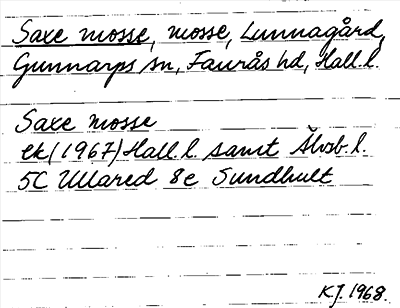 Saxe mosse, mosse, Lunnagård,
Gunnarps sn, Faurås hd, Hall.l.
Saxe mosse
ek (1967) Hall.l. samt Älvsb.l.
5C Ullared 8e Sundhult
KJ. 1968.